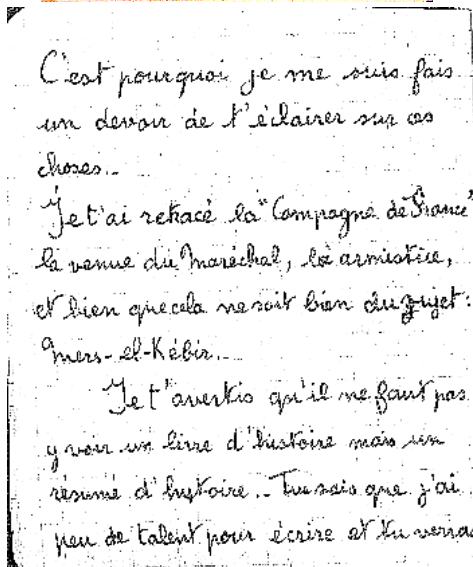 C'est pourquoi je me suis fais
un devoir de t'éclairer sur ces
choses..
Je t'ai retracé la "Campagne de France"
la venue du Maréchal, la armistice,
et bien que cela ne soit bien du sujet :
Mers-el-Kébir..
Je t'avertis qu'il ne faut pas
y voir un livre d'histoire mais un
résumé d'hytoire.. Tu sais que j'ai
peu de talent pour écrire et tu verras